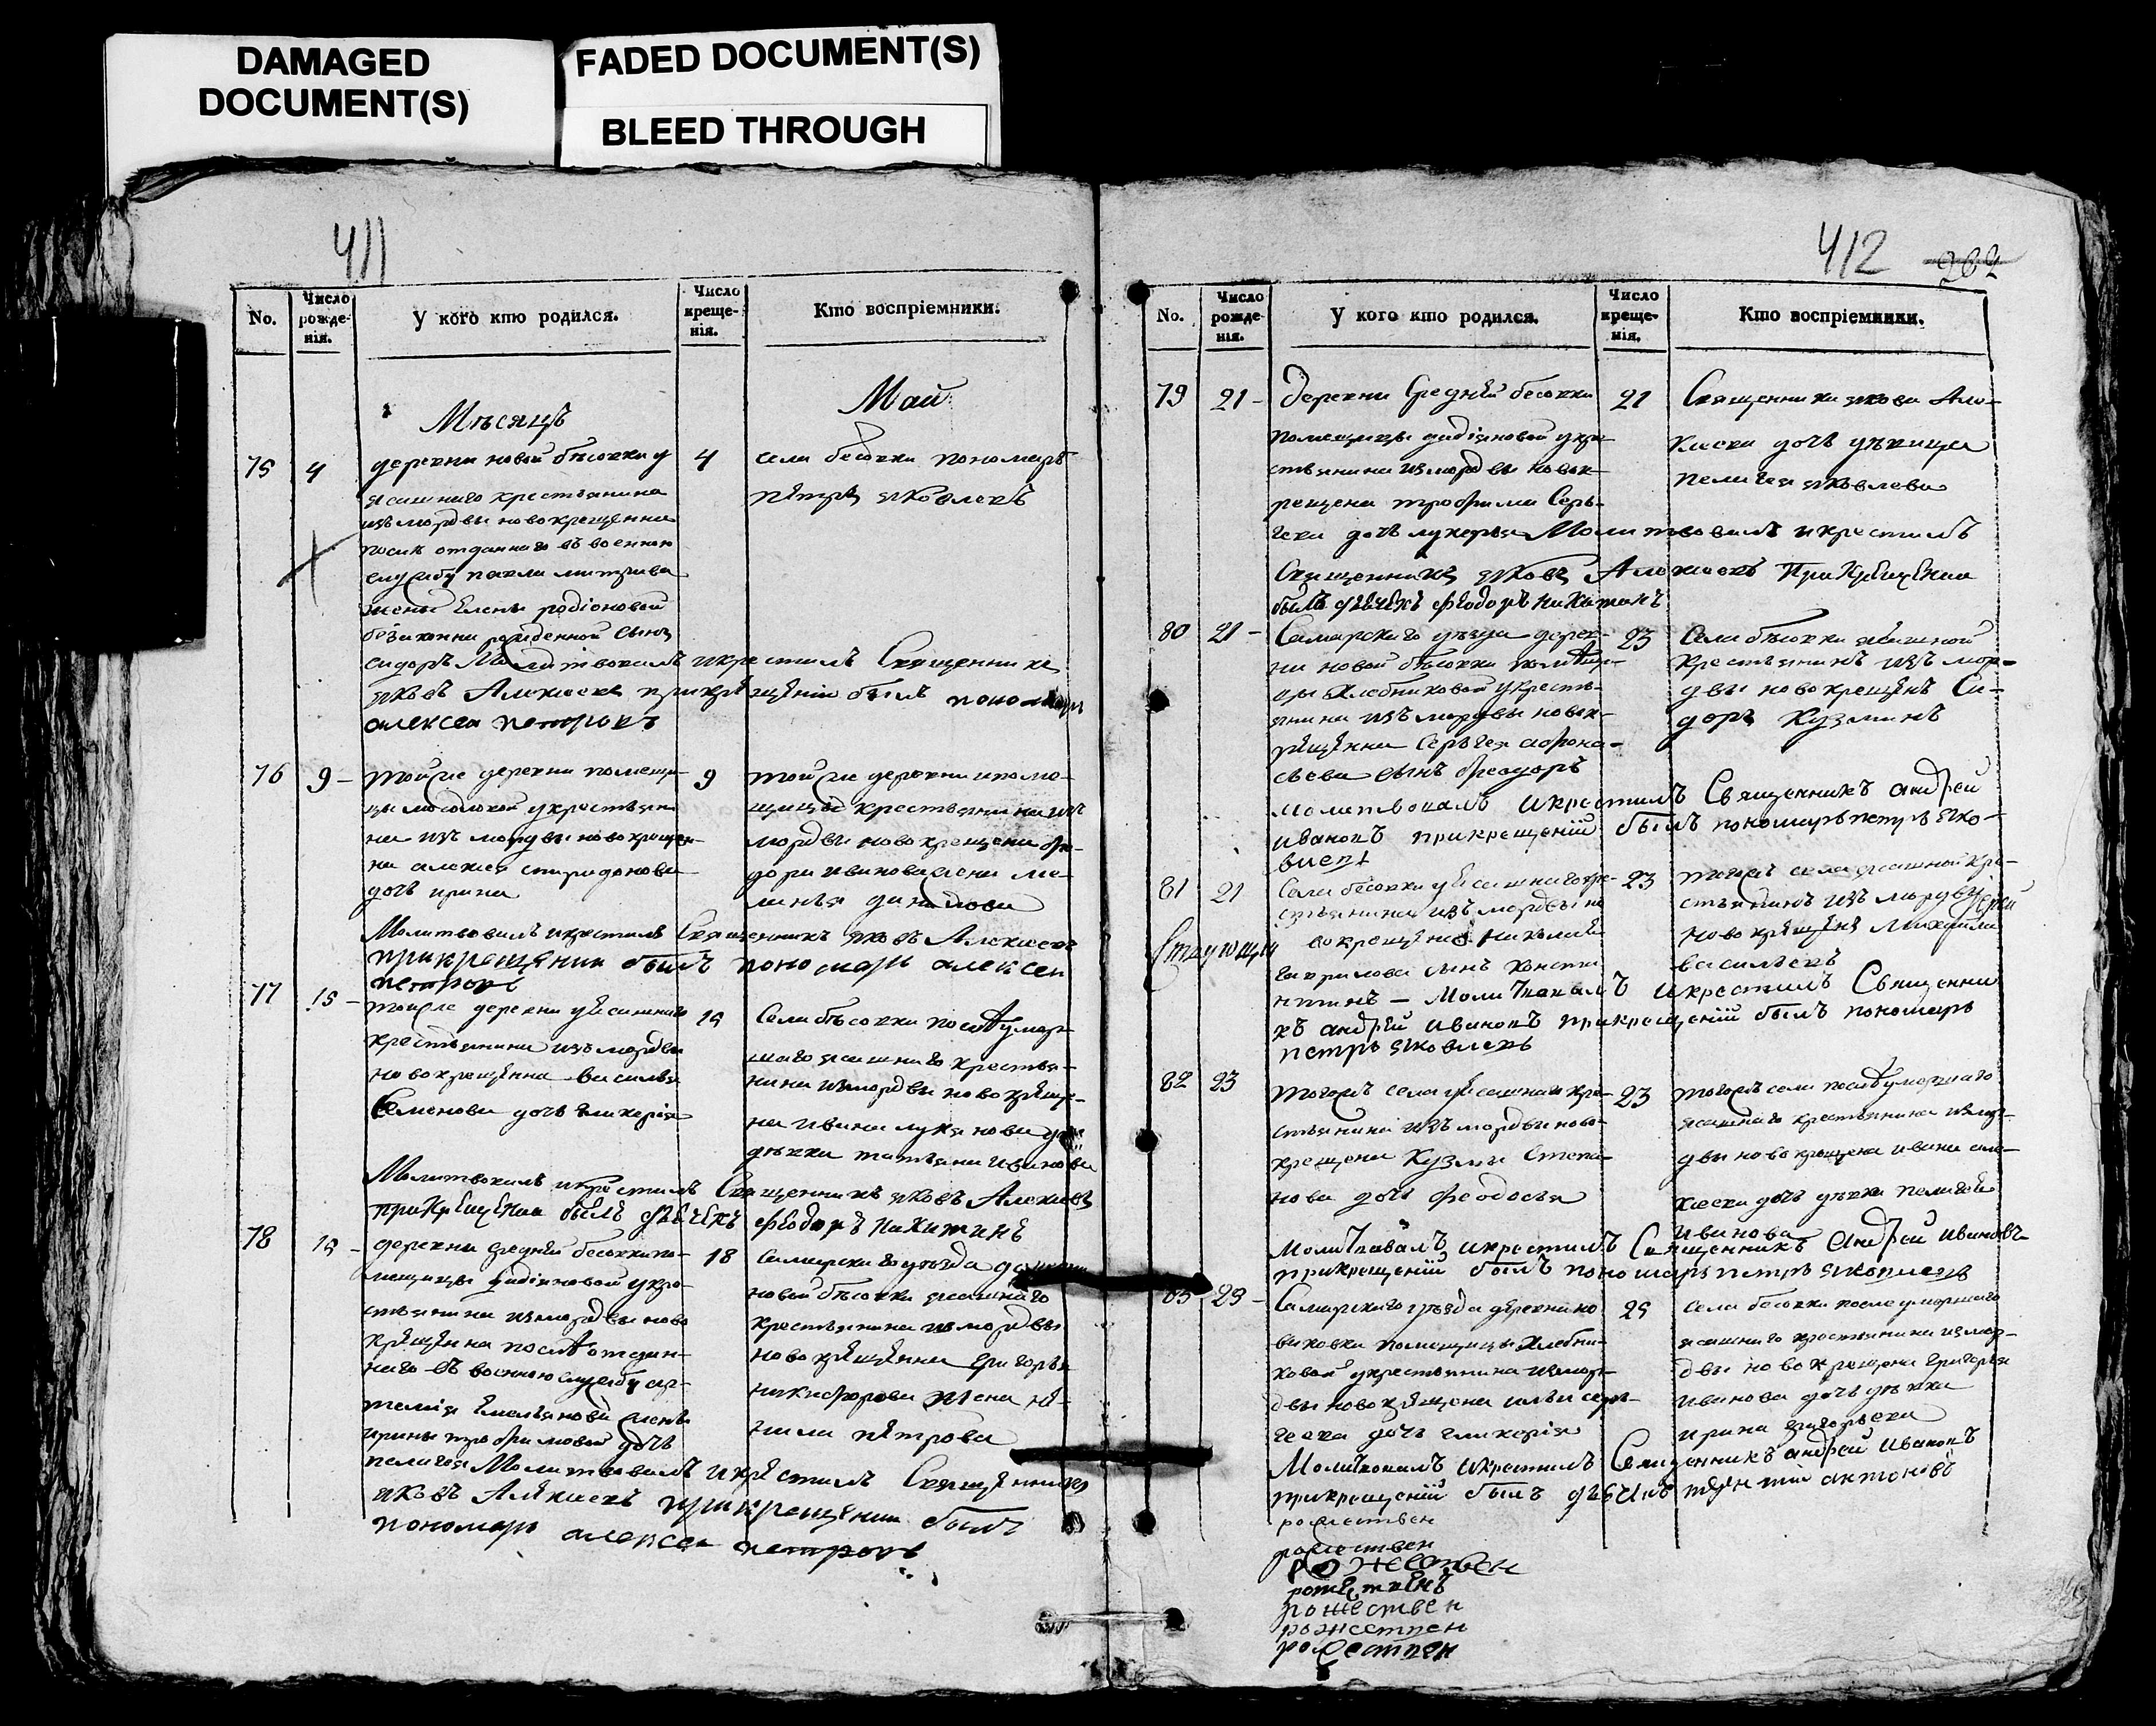 DAMAGED
DOCUMENT(S)
FADED DOCUMENT(S)
BLEED THROUGH
411
No.
Число рожде- нія.
У кого кто родился.
Число креще- нія.
Кто воспріемники.
Мѣсяцъ
Май
75
4
деревни новой бѣсовки у
ясашнаго крестьянина
изъ мордвы новокрещенна
послѣ отданнаго въ военную
службу павла
жены Елены родіоновой
беззаконно рожденной сынъ
сидоръ Молитвовалъ и крестилъ Священникъ
яковъ Алексеевъ при крещеніи былъ пономарь
алексей петровъ
4
села бесовки пономарь
петръ яковлевъ
76
9 -
той же деревни помещи-
цы у крестьяни
на изъ мордвы новокрещен-
на алексея спиридонова
дочь ирина
Молитвовалъ и крестилъ Священникъ яковъ Алексеевъ
при крещении былъ пономарь алексей
петровъ
9
той же деревни и поме-
щицы крестьянина изъ
мордвы новокрещена фе-
дора иванова жена ме-
ланья данилова
77
15 -
той же деревни у ясашнаго
крестьянина изъ мордвы
новокрещенна василья
Семенова дочь гликерія
Молитвовалъ и крестилъ Священникъ яковъ Алексеевъ
при крещении былъ дьячекъ феодоръ никитинъ
15
Села бѣсовки послѣ умер-
шаго ясашнаго крестья-
нина изъ мордвы новокреще-
на ивана лукянова
девки татьяна иванова
78
15 -
деревни средней бесовки по-
мещицы дидіяновой у кре-
стьянина из мордвы ново
крещенна послѣ отдан-
наго въ военную службу ар-
темія Емельянова жены
ирины трофимовой дочь
пелагея Молитвовалъ и крестилъ Священникъ
яковъ Алексеевъ при крещении былъ
пономарь алексей петровъ
18
Самарскаго уезда деревни
новой бѣсовки ясашнаго
крестьянина из мордвы
новокрещенна григорья
никифорова жена
петрова
412
No.
Число рожде- нія.
У кого кто родился.
Число креще- нія.
Кто воспріемники.
79
21 -
Деревни Средней бесовки
помещицы дидіяновой у кре-
стьянина из мордвы новок-
рещена трофима Серь-
геева дочь лукерья Молитвовалъ и крестилъ
Священникъ яковъ Алексеевъ При Крещении
былъ дьячекъ феодоръ никитинъ
21
Священника якова Але-
ксеева дочь девица
пелагея яковлева
80
21 -
Самарскаго уезда дерев-
ни новой бѣсовки помещи-
цы Хлебниковой у кресть-
янина изъ мордвы новок-
рещенна Серьгея афона-
сьева сынъ феодоръ
молитвовалъ и крестилъ Священникъ андрей
ивановъ при крещеніи былъ пономарь петръ яко-
влевъ
23
Села бѣсовки ясашной
крестьянинъ изъ мор-
двы новокрещенъ Си-
доръ Кузминъ
81
21
Села бесовки у ясашнаго кре-
стьянина изъ мордвы но
вокрещена Николая
гаврилова сынъ конста
нтинъ - Молитвовалъ и крестилъ Священни
къ андрей ивановъ при крещеніи былъ пономарь
петръ яковлевъ
23
того жъ села ясашной кре-
стьянинъ изъ мордвы
новокрещенъ
васильевъ
82
23
того жъ села у ясашнаго кре-
стьянина изъ мордвы ново-
крещена Кузмы Степа-
нова дочь феодосья
Молитвовалъ и крестилъ Священникъ Андрей ивановъ
при крещеніи былъ пономарь петръ яковлевъ
23
того жъ села послѣ умершаго
ясашнаго крестьянина из мор-
двы новокрещена ивана але-
ксеева дочь девка пелагея
иванова
83
29 -
Самарскаго уезда деревни но
виковки помещицы Хлебни-
ковой у крестьянина из мор-
двы новокрещена ильи серь-
геева дочь гликерія
Молитвовалъ и крестилъ Священникъ андрей ивановъ
при крещеніи былъ дьячекъ антоновъ
29
села бесовки после умершаго
ясашнаго крестьянина из мор-
двы новокрещена григорья
иванова дочь девка
ирина григорьева
рожествен
рожествен
рожествен
рожествен
рожествен
рожествен